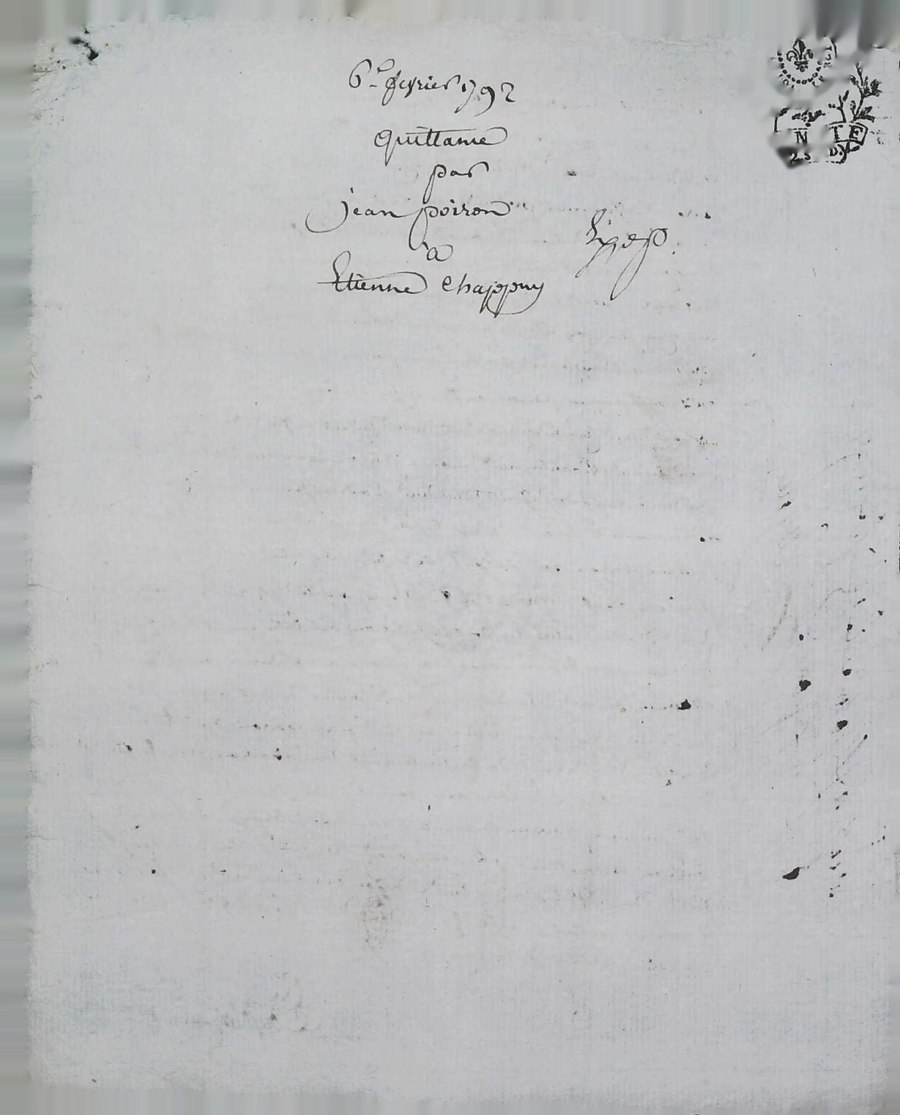 6e fevrier 1792
quittance
par
jean poiron
à
Etienne Chappuy
Exped.